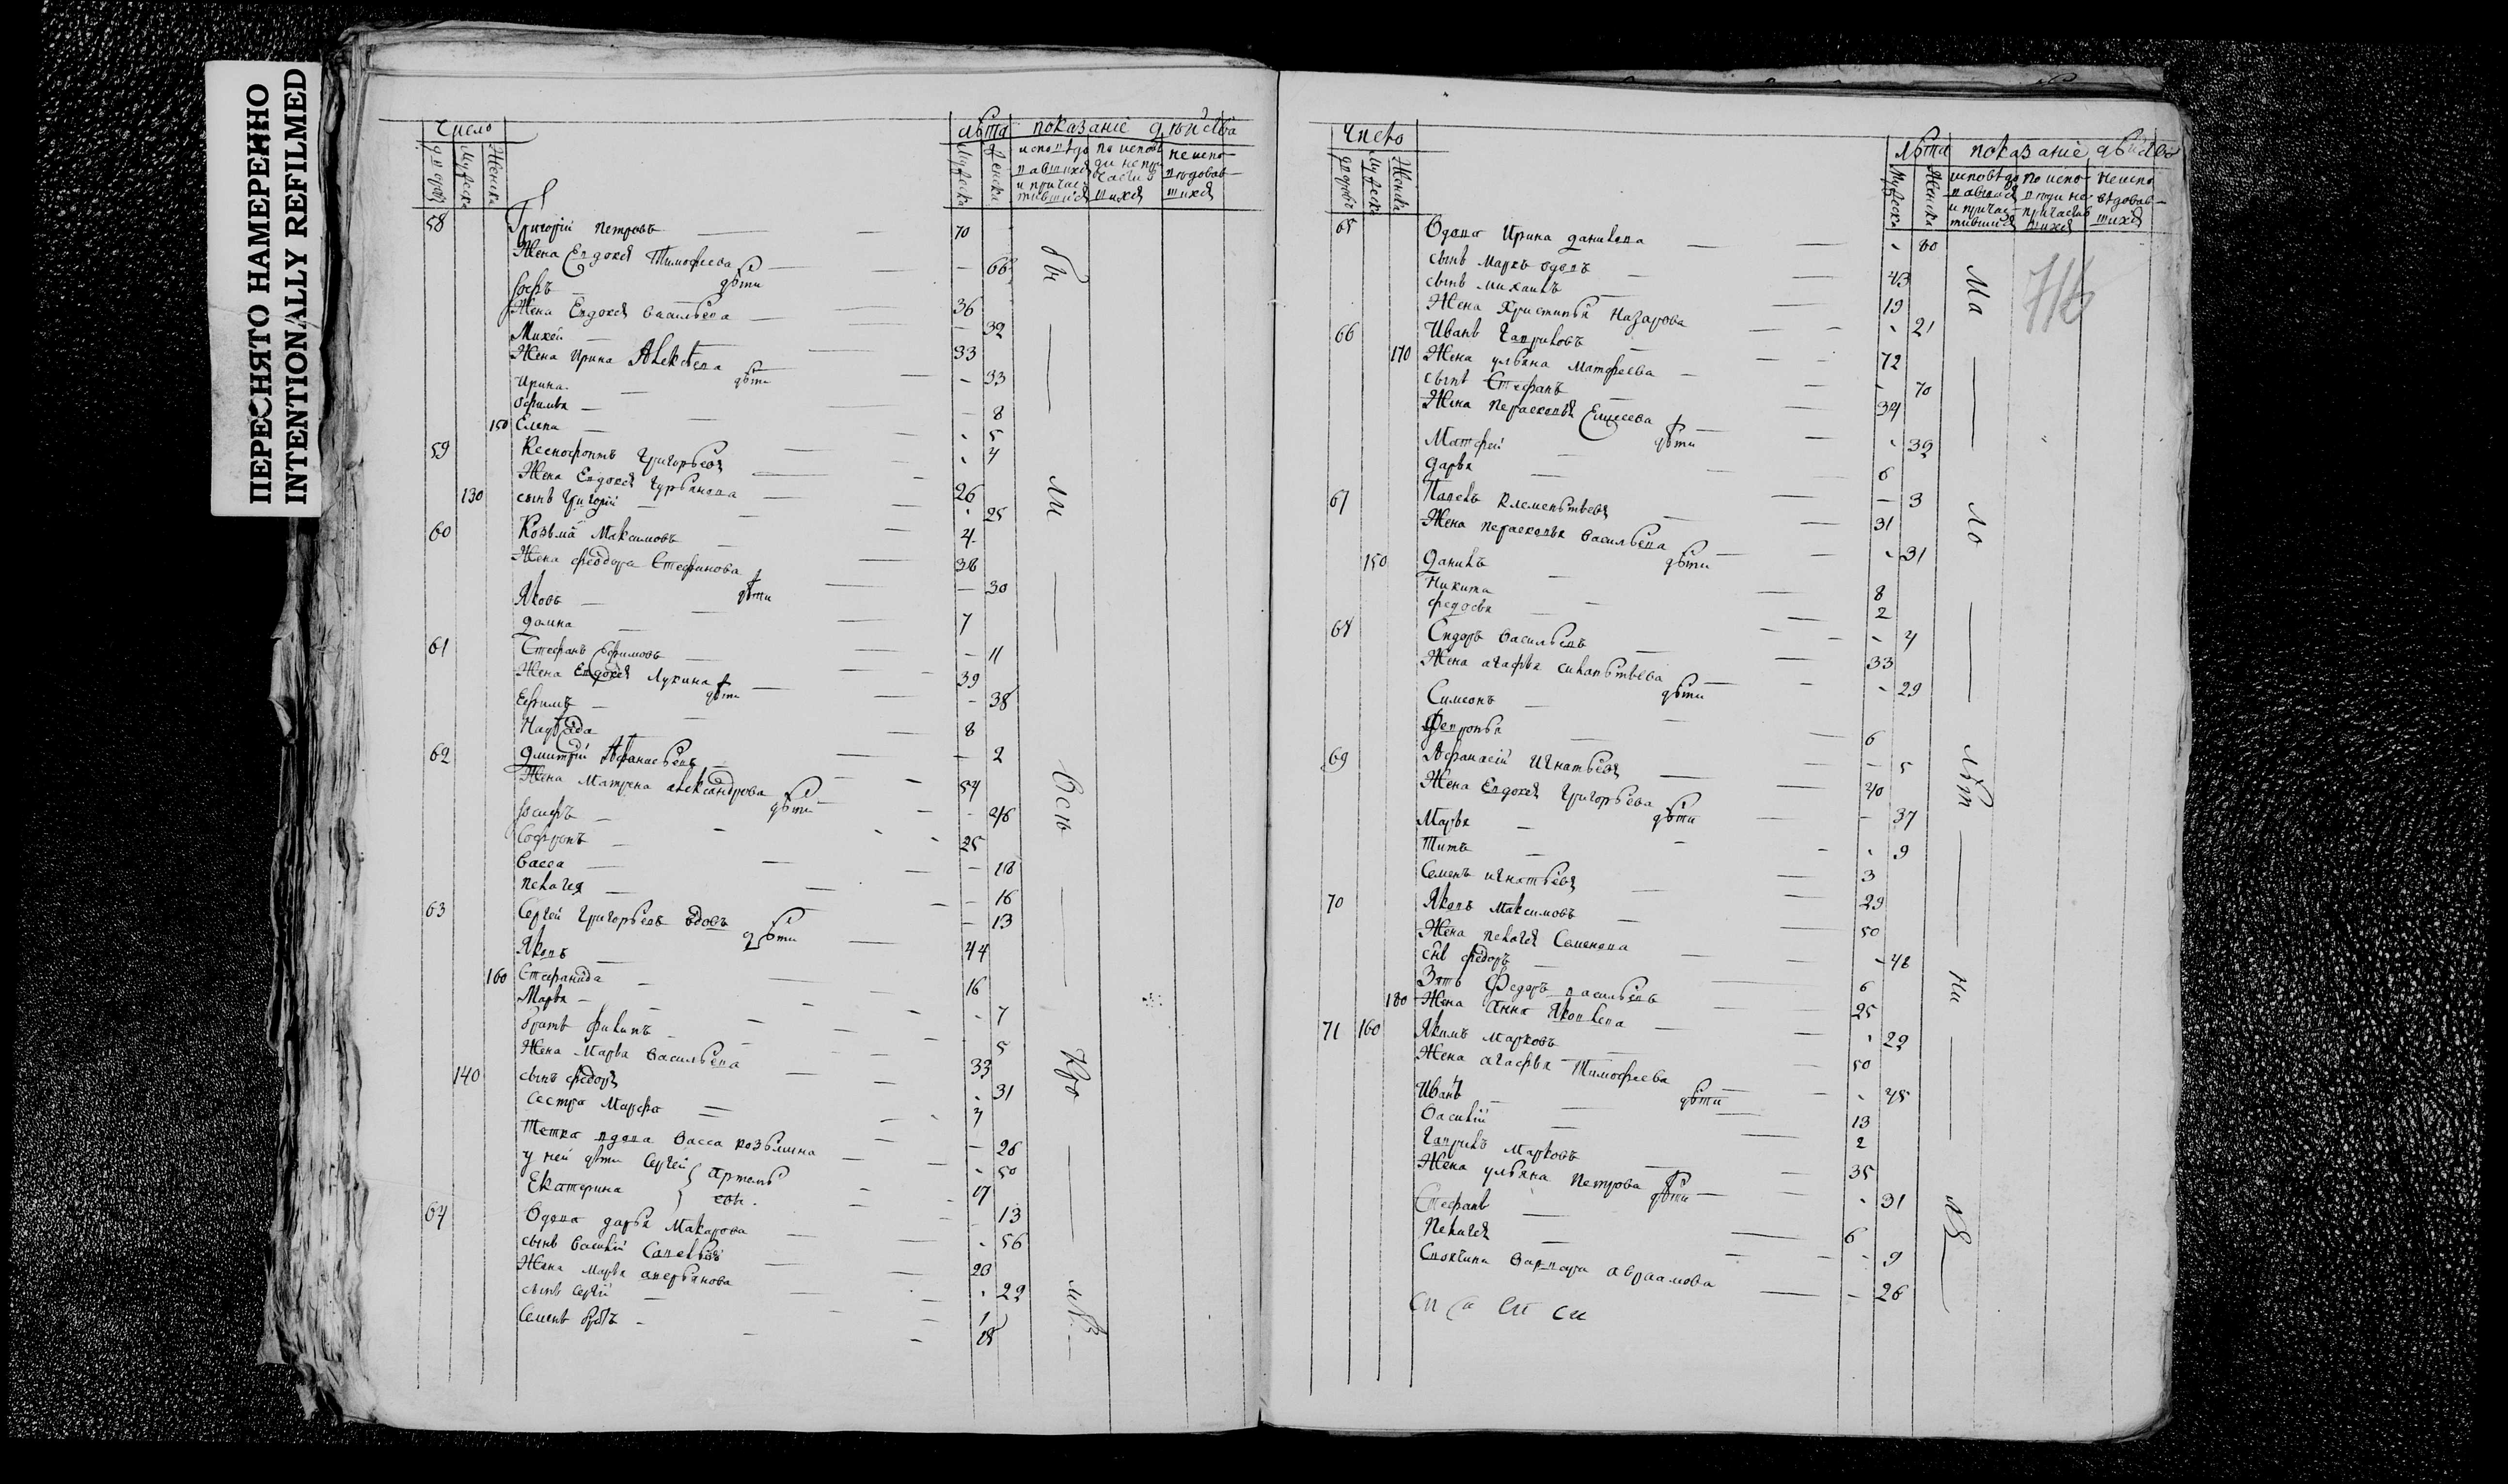 ПЕРЕСНЯТО НАМЕРЕННО
INTENTIONALLY REFILMED
число
лѣта показаніе дѣйства
дворовъ
мужеска
женска
мужеска
женска
исповѣдовавшихся и причастившихся
по исповѣди не причастившихся
не исповѣдовавшихся
58 Григорій Петровъ 70
Жена Евдокея Тимофеева 66
дѣти
Жена Евдокея Васильева 36
Михей 32
Жена Ирина Алексѣева 33
дѣти
Ирина 33
Офимья 8
150 Елена 5
59 Ксенофонтъ Григорьевъ 4
Жена Евдокея Гурьянова 26
130 сынъ Григорій 25
60 Козьма Максимовъ 4
Жена Феодора Стефанова 38
дѣти 30
Яковъ
Домна 7
61 Стефанъ Ефимовъ 11
Жена Евдокея Лукина 39
дѣти
Ефимъ 38
Надѣжда 8
62 Дмитрій Афанасьевъ 2
Жена Матрена Александрова 54
дѣти
Іосифъ 46
Софронъ 25
Васса 18
Пелагея 16
63 Сергей Григорьевъ вдовъ 13
дѣти
Яковъ 44
160 Стефанида 16
Марья 7
братъ Филипъ 5
Жена Марья Васильева 33
140 сынъ Федоръ 31
сестра Марфа 7
Тетка вдова Васса Козьмина 26
у ней дѣти Сергей 50
Екатерина 17
64 Вдова Дарья Макарова 13
сынъ Василій Савельевъ 56
Жена Марья Аверьянова 20
сынъ Сергей 22
Семенъ братъ 1
18
бы ли Всѣ Кро мѣ
число
лѣта показаніе дѣйства
дворовъ
мужеска
женска
мужеска
женска
исповѣдовавшихся и причастившихся
по исповѣди не причастившихся
не исповѣдовавшихся
65 Вдова Ирина Данилова 80
сынъ Маркъ вдовъ 43
сынъ Михаилъ 19
Жена Христинья Назарова 21
66 Иванъ Гавриловъ 72
170 Жена Ульяна Матфеева 70
сынъ Стефанъ 34
Жена Перасковья Елисеева 32
дѣти
Матфей 6
Дарья 3
67 Павелъ Клементьевъ 31
Жена Перасковья Васильева 31
дѣти
150 Данилъ 8
Никита 2
Федосья 4
68 Сидоръ Васильевъ 33
Жена Агафья Силантьева 29
дѣти
Симеонъ 6
Февронья 5
69 Афанасій Игнатьевъ 40
Жена Евдокея Григорьева 37
дѣти
Марья 9
Титъ 3
Семенъ Игнатьевъ 29
70 Яковъ Максимовъ 50
Жена Пелагея Семенова 48
сынъ Федоръ 6
Зять Федоръ Васильевъ 25
180 Жена Анна Яковлева 22
71 160 Якимъ Марковъ 50
Жена Агафья Тимофеева 45
дѣти
Иванъ 13
Василій 2
Гаврилъ Марковъ 35
Жена Ульяна Петрова 31
дѣти
Стефанъ 6
Пелагея 9
Своячина Варвара Авраамова 26
Ма ло лѣт ни хъ